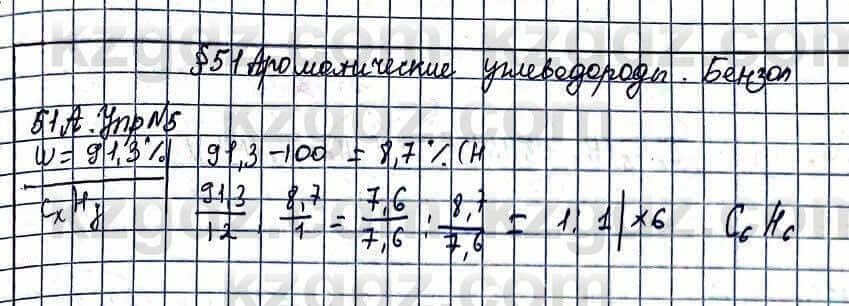 §51 Ароматические углеводороды. Бензол
51А. Упр№5
W = 91,3% 91,3 - 100 = 8,7% (H
CxHy 91,3/12 : 8,7/1 = 7,6/7,6 : 8,7/7,6 = 1:1 | ×6 C6H6
kzgdz.com